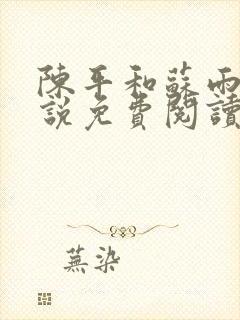 陳平和蘇雨
説免費閱讀
蕪染